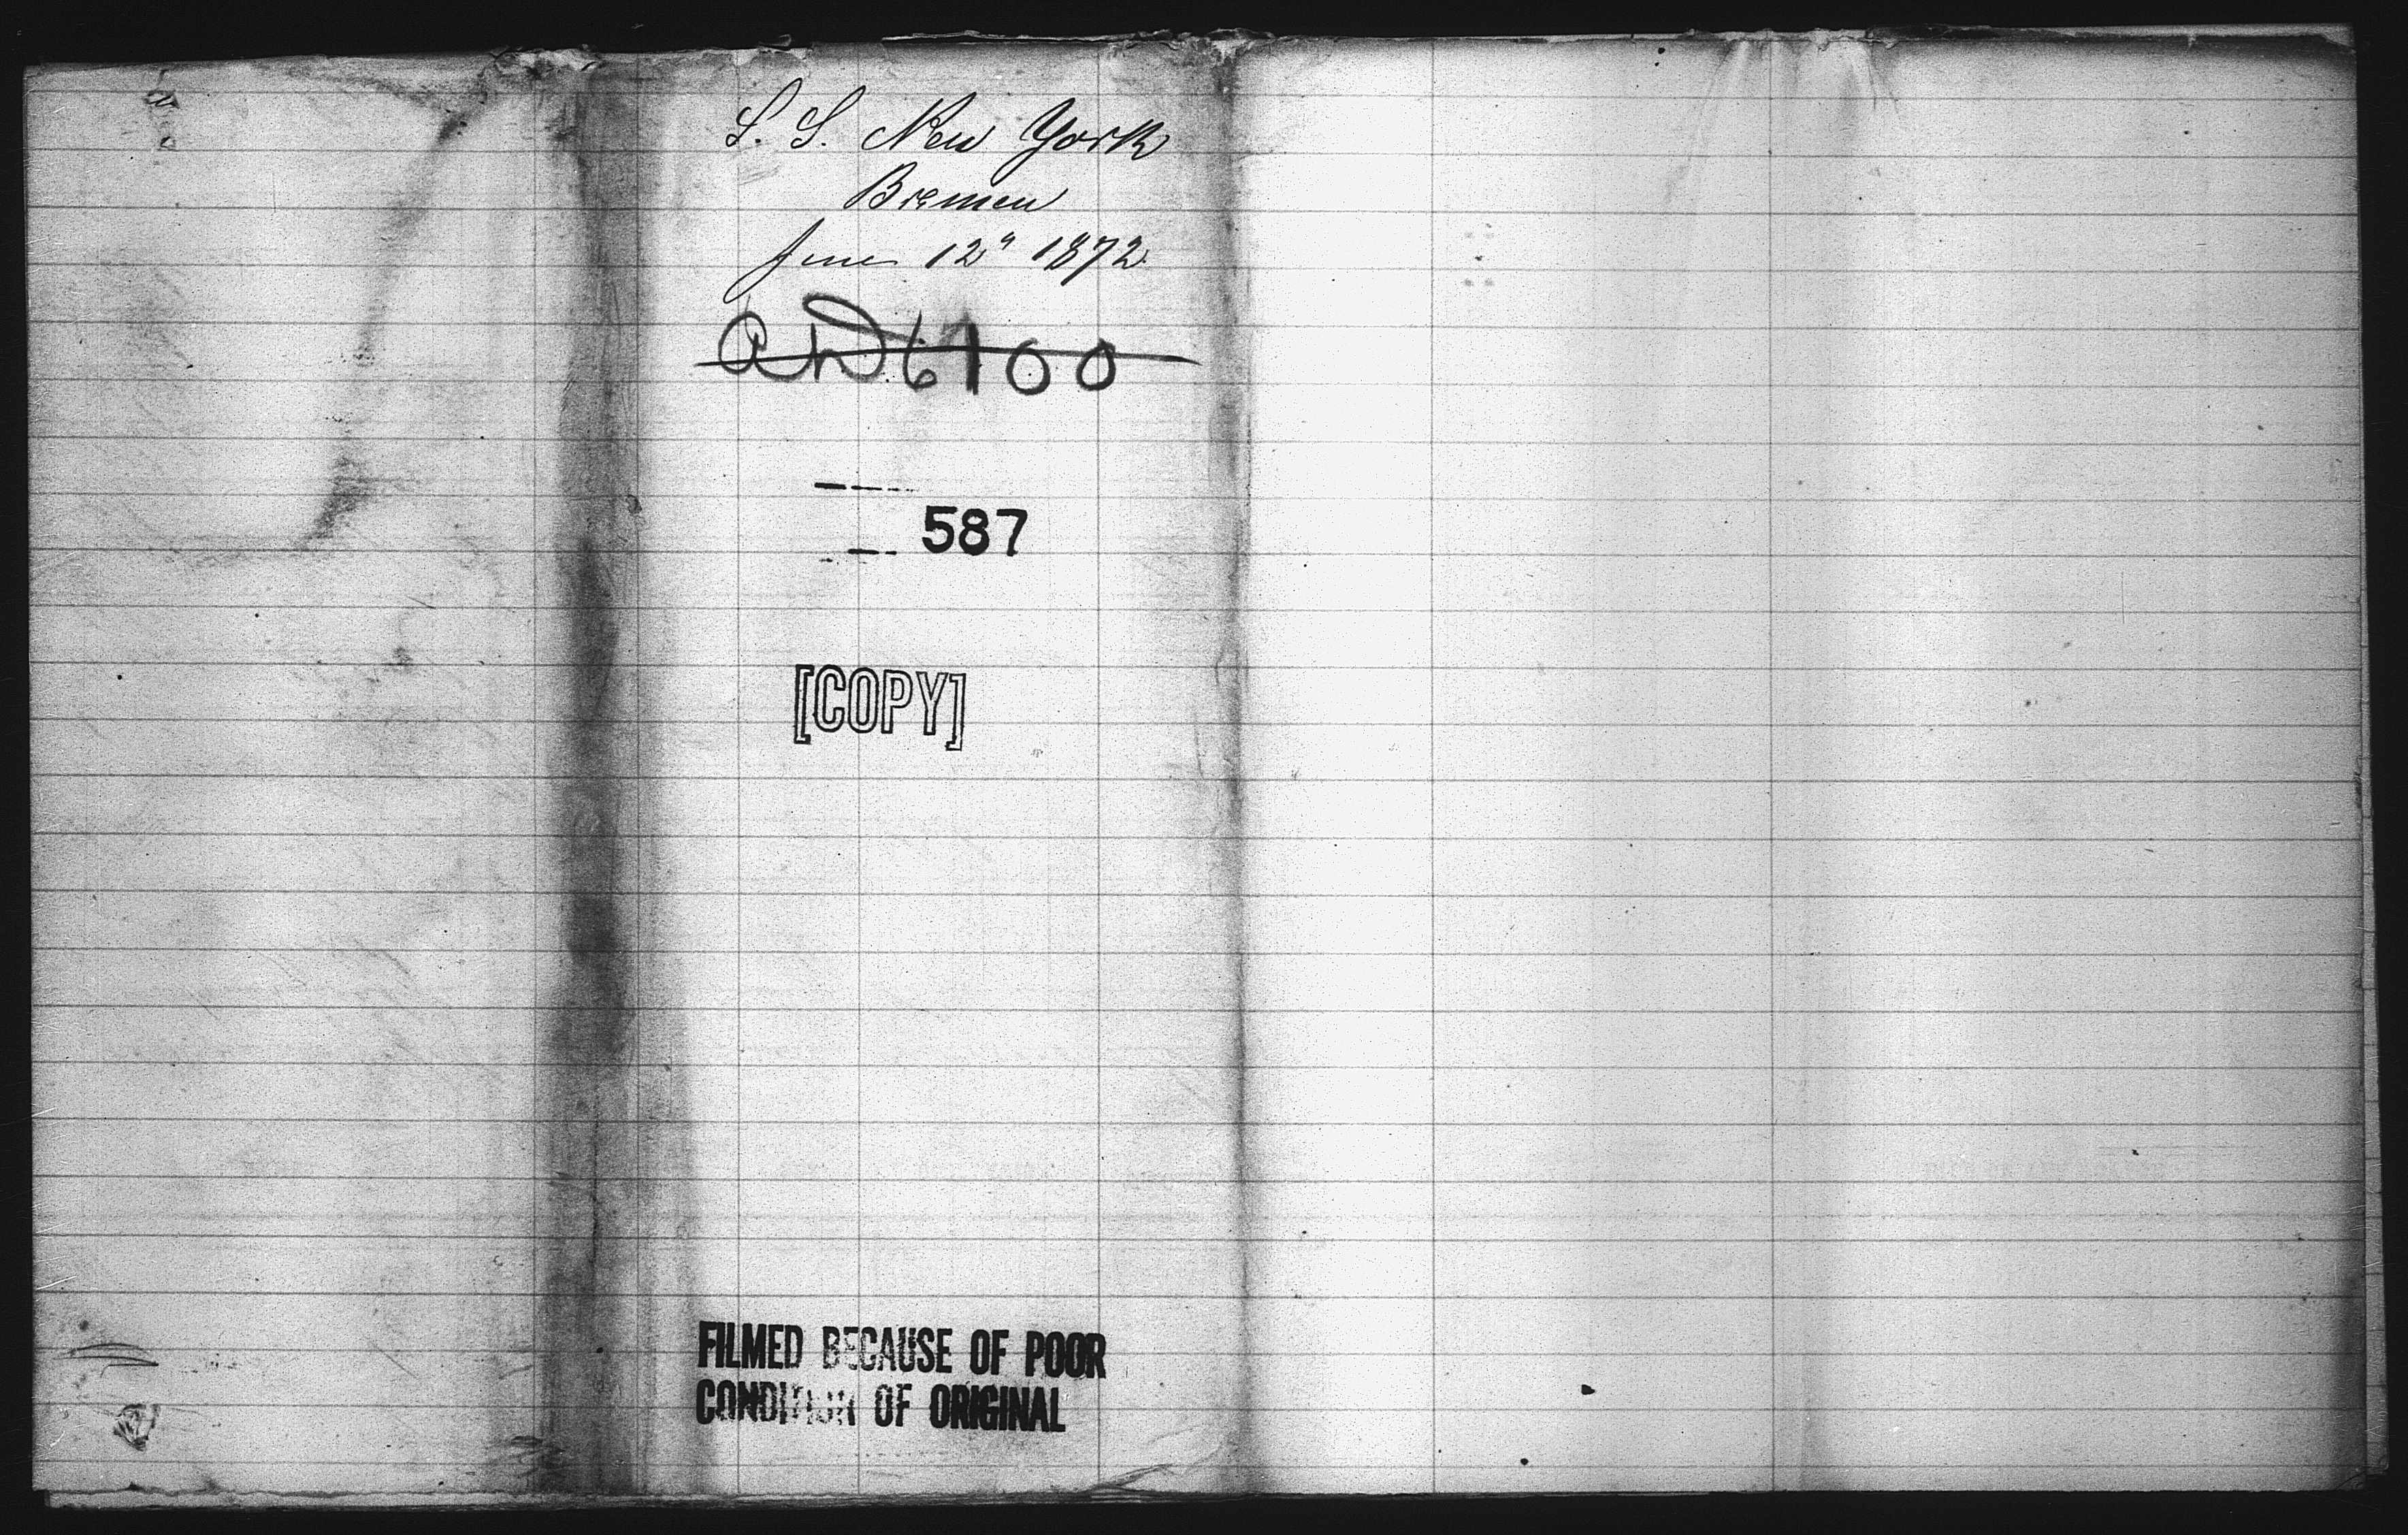 S. S. New York
Bremen
June 12" 1872
6100
587
[COPY]
FILMED BECAUSE OF POOR
CONDITION OF ORIGINAL